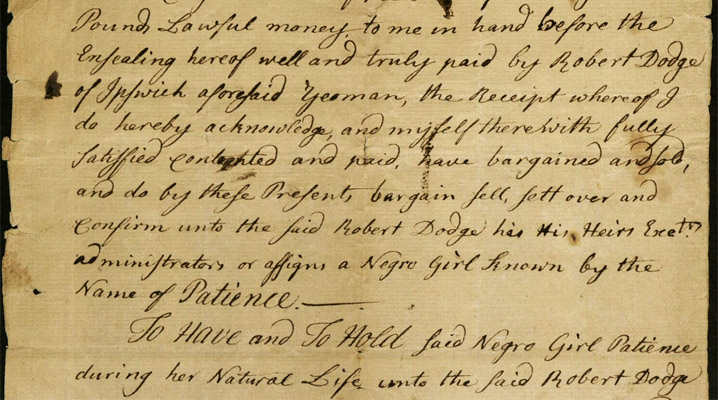 Pounds Lawful money, to me in hand before the
Ensealing hereof well and truly paid by Robert Dodge
of Ipswich aforesaid Yeoman, the Receipt whereof I
do hereby acknowledge, and myself therewith fully
satisfied contented and paid, have bargained and sold,
and do by these Presents bargain sell, sett over and
Confirm unto the said Robert Dodge his His Heirs Exetrs
administrators or assigns a Negro Girl Known by the
Name of Patience.
To Have and To Hold said Negro Girl Patience
during her Natural Life unto the said Robert Dodge